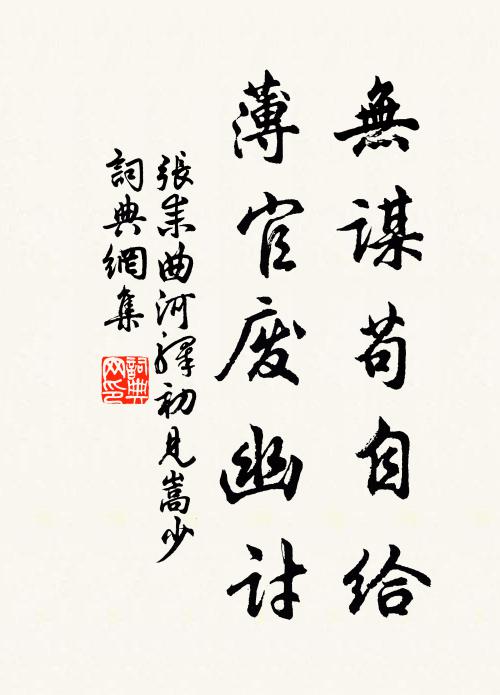 無謀苟自給
薄官廢幽討
張耒曲河驛初見嵩少
詞典網集
詞典
网印